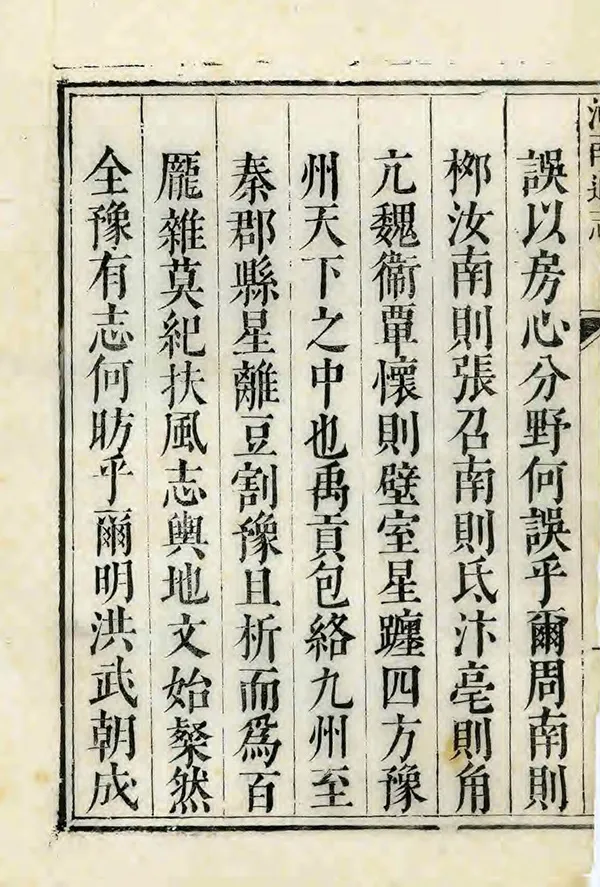 河南通志
誤以房心分野何誤乎爾周南則
栁汝南則張召南則氐汴亳則角
亢魏衞覃懷則壁室星躔四方豫
州天下之中也禹貢包絡九州至
秦郡縣星離豆割豫且析而爲百
龐雜莫紀扶風志輿地文始粲然
全豫有志何昉乎爾明洪武朝成